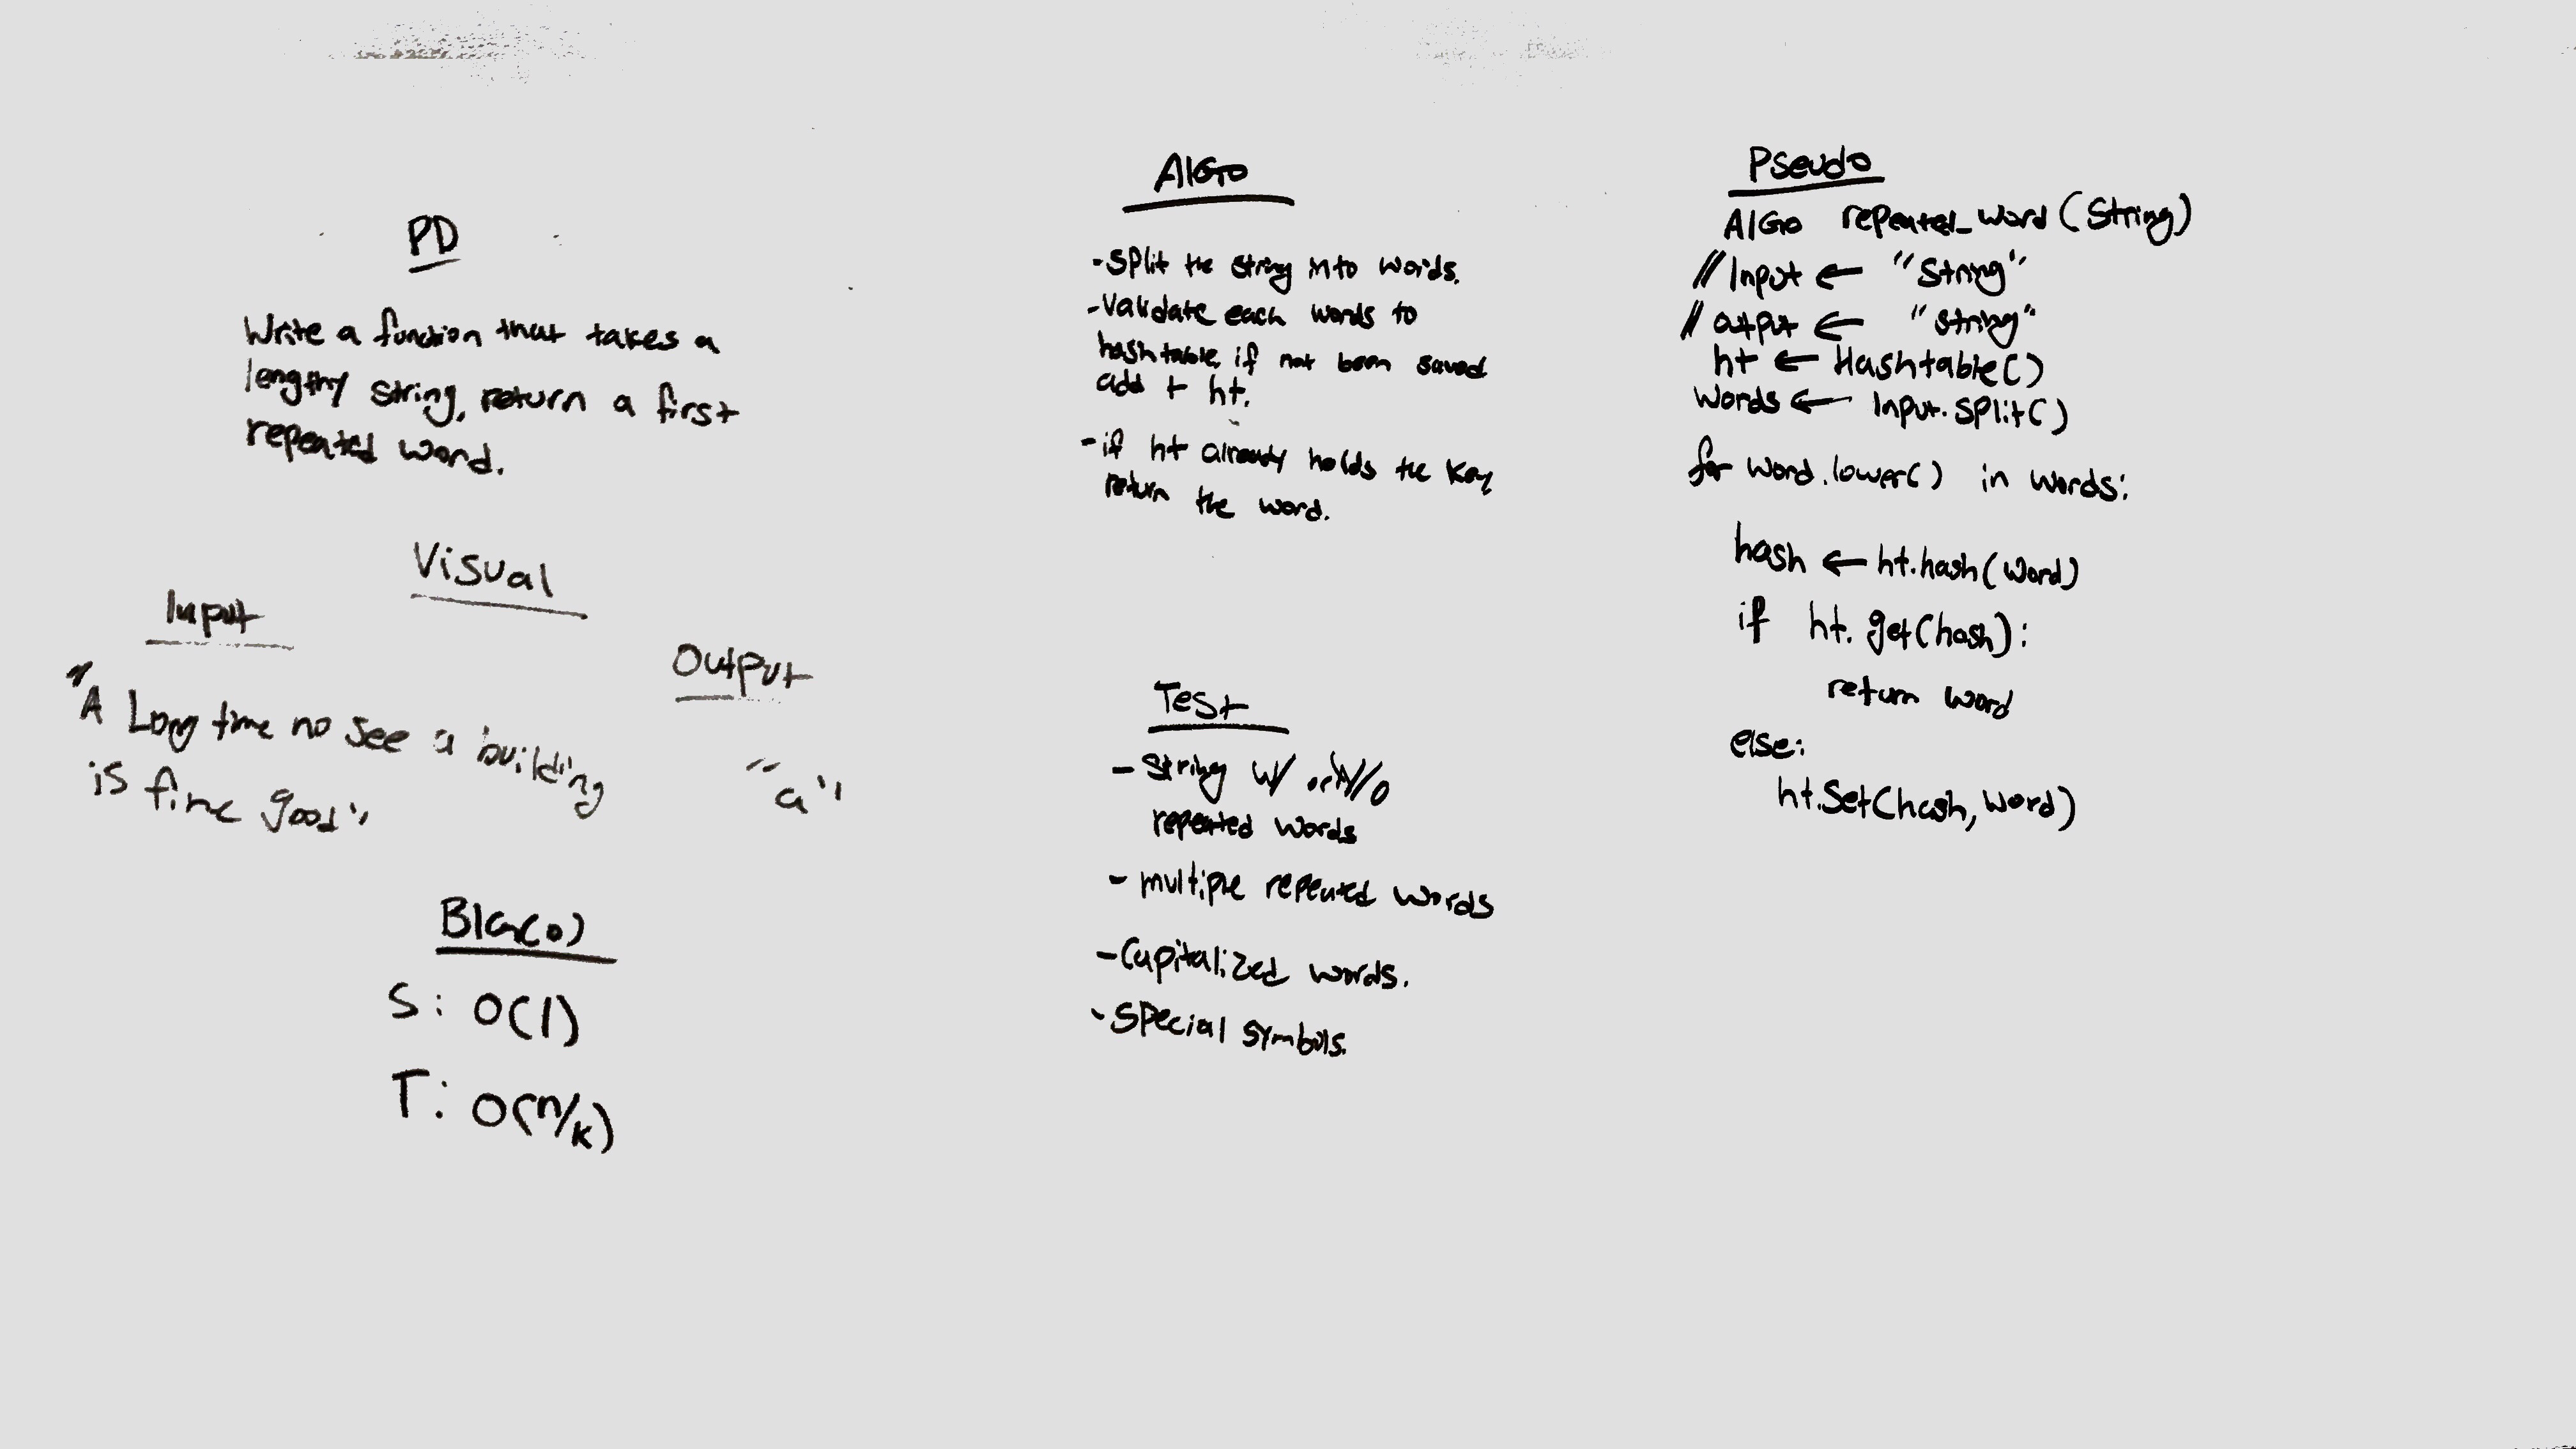 PD
Write a function that takes a
lengthy string, return a first
repeated word.
Visual
Input
"A Long time no see a building
is fine good"
Output
"a"
BIG(O)
S: O(1)
T: O(n/k)
AlGo
-split the string into words.
-Validate each words to
hashtable, if not been saved
add t ht.
-if ht already holds the key
return the word.
Test
- String w/ w/o
repeated words
- multiple repeated words
- Capitalized words.
- Special symbols.
Pseudo
AlGo repeated_word(String)
// Input ← "String"
// output ← "string"
ht ← Hashtable()
words ← Input.split()
for word.lower() in words:
hash ← ht.hash(word)
if ht.get(hash):
return word
else:
ht.set(hash, word)